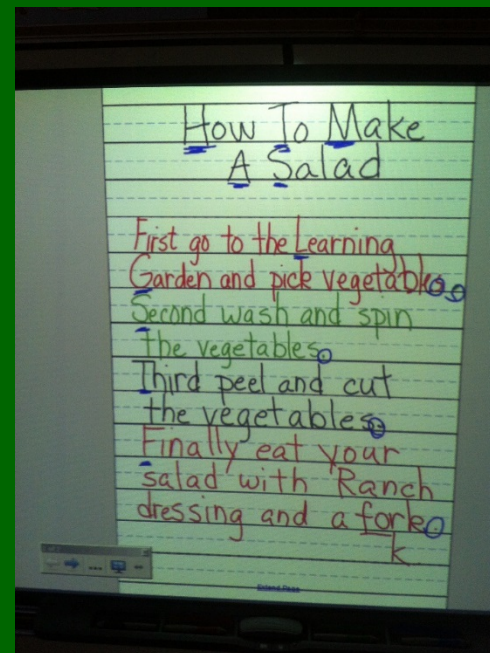 How To Make
A Salad
First go to the Learning
Garden and pick vegetables.
Second wash and spin
the vegetables.
Third peel and cut
the vegetables.
Finally eat your
salad with Ranch
dressing and a fork.
k